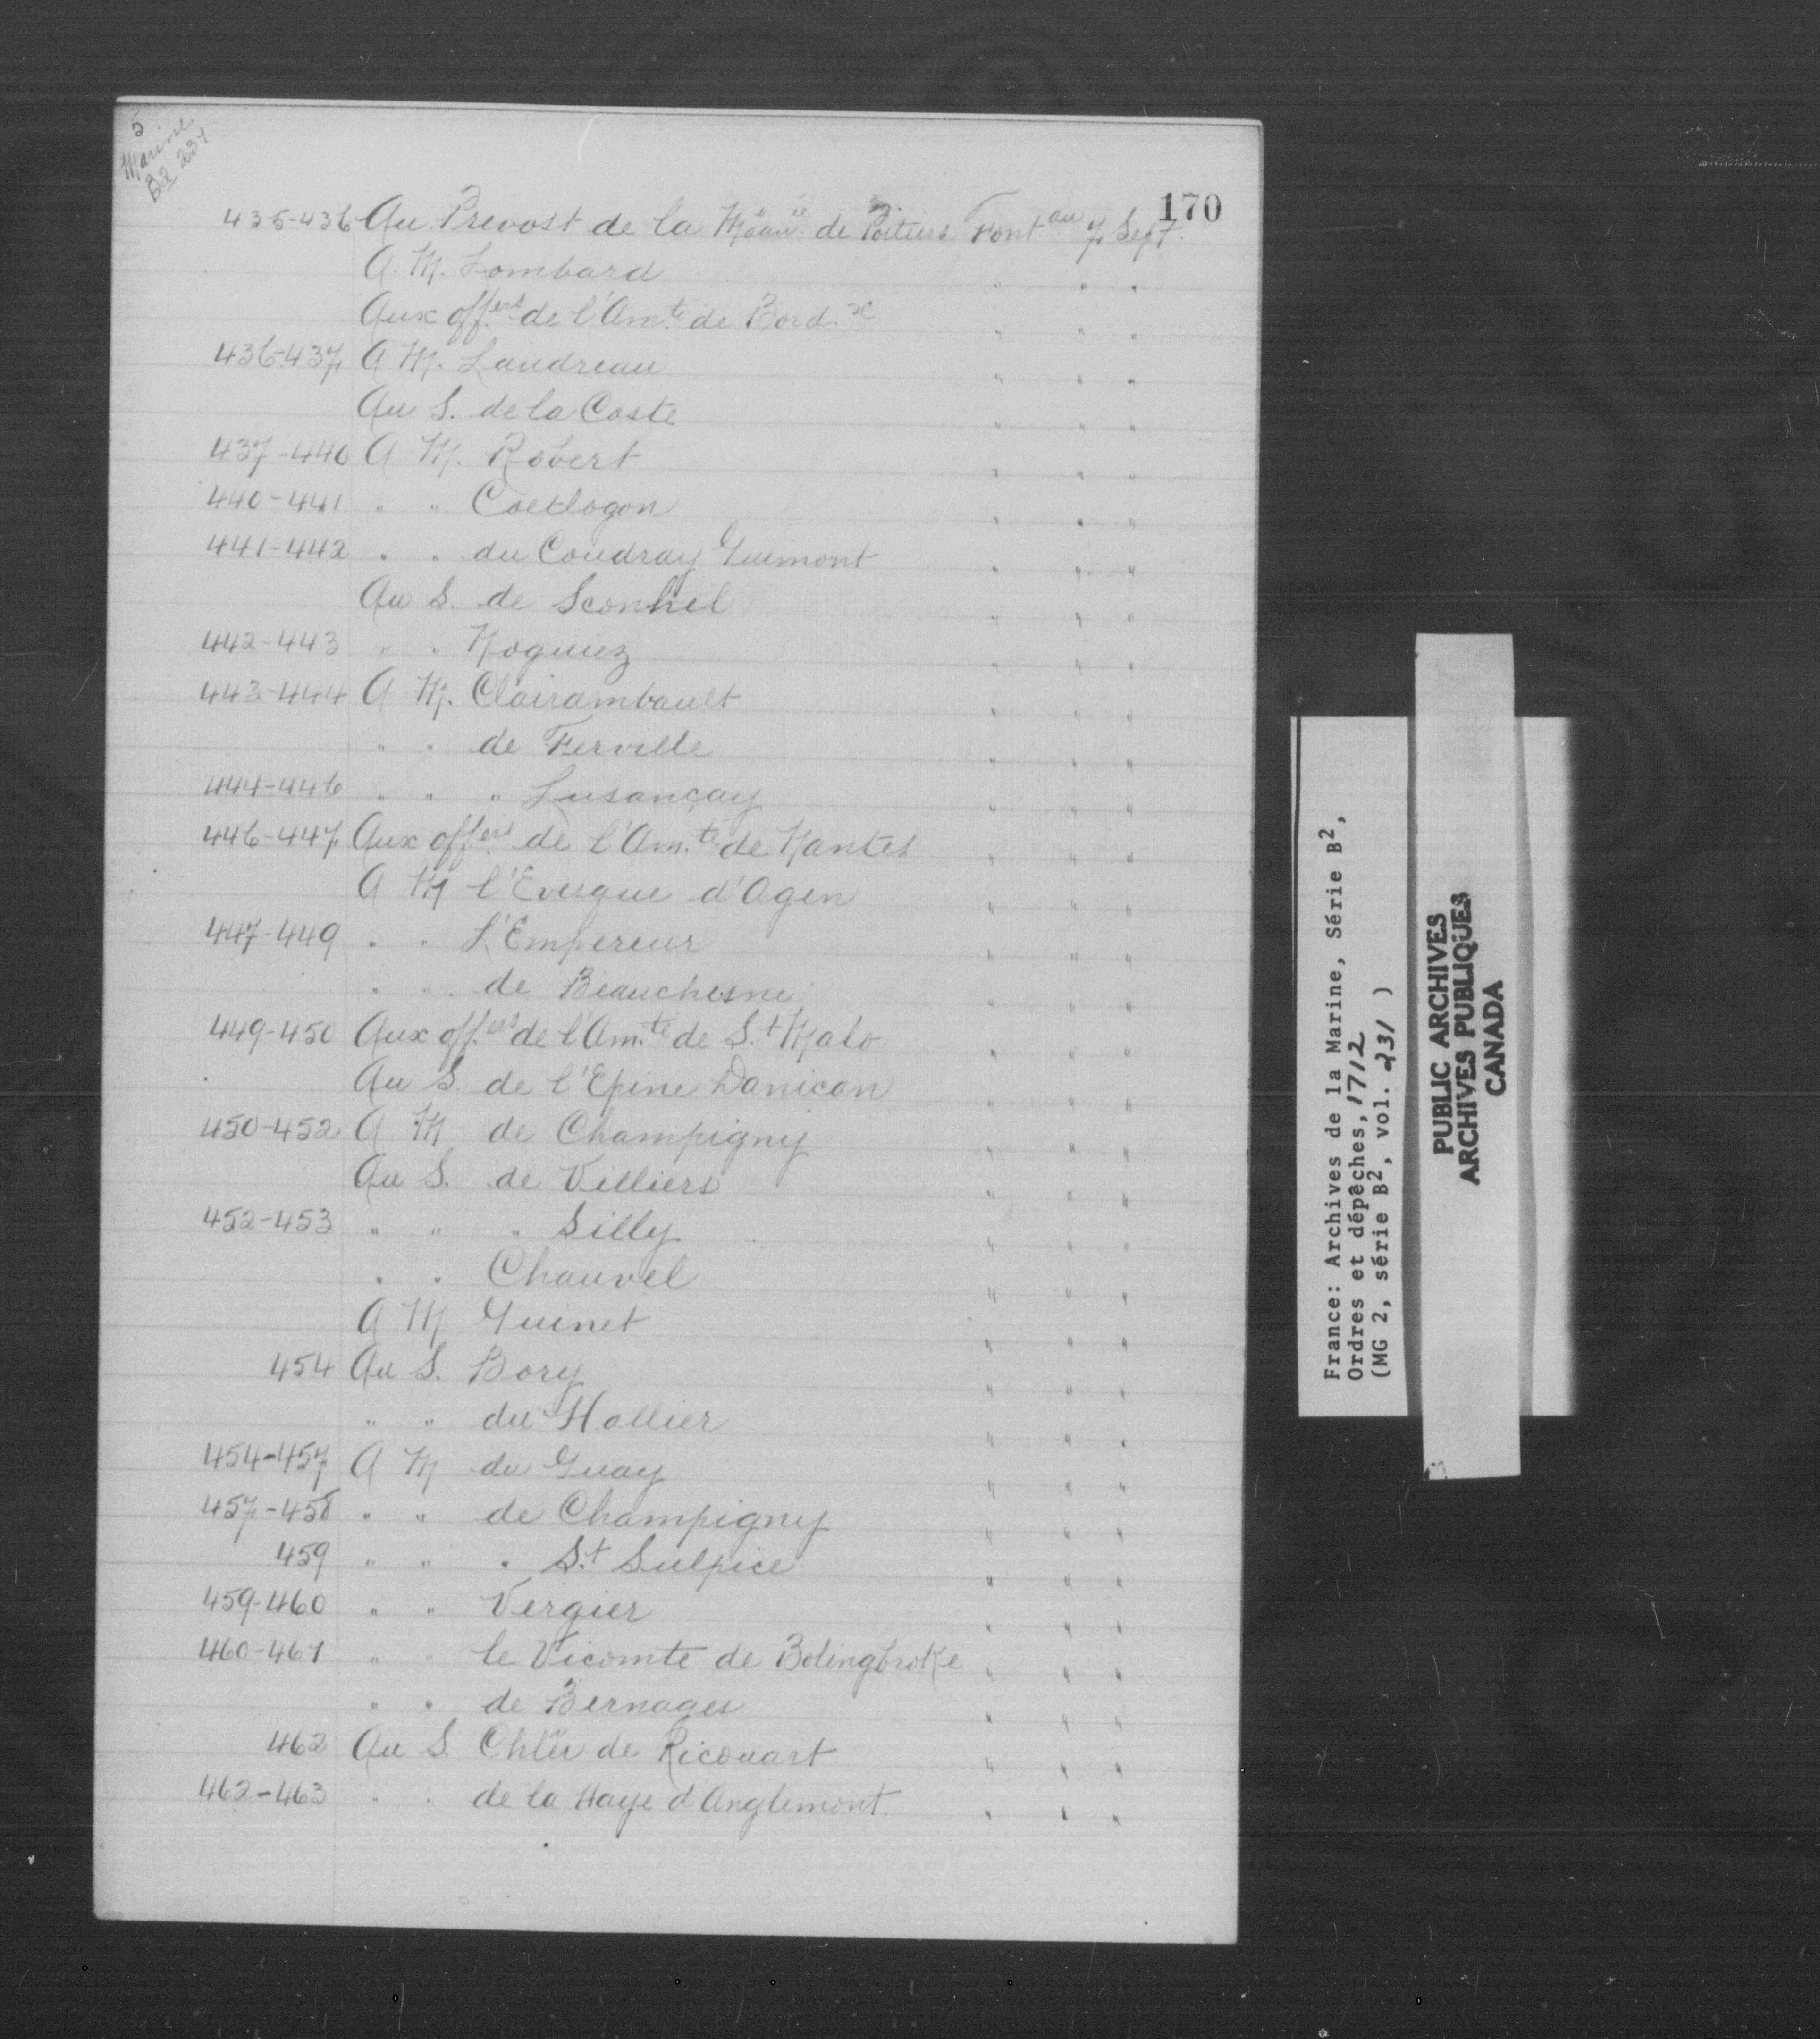 5
Marine
B2 231
170
435-436 Au Prevost de la de Poitiers Font.au 7 Sept.
A. M. Lombard " " "
Aux off.ers de l'Am.té de Bord.x " " "
436-437 A M. Landreau " " "
Au S. de la Coste " " "
437-440 A M. Robert " " "
440-441 " " Coetlogon " " "
441-442 " " du Coudray Guimont " " "
Au S. de " " "
442-443 " " Noguiez " " "
443-444 A M. Clairambault " " "
" " de Ferville " " "
444-446 " " " Lusançay " " "
446-447 Aux off.ers de l'Am.té de Nantes " " "
A M l'Evesque d'Agen " " "
447-449 " " L'Empereur " " "
" " de Beauchesne " " "
449-450 Aux off.ers de l'Am.té de S.t Malo " " "
Au S. de l'Epine Danican " " "
450-452 A M de Champigny " " "
Au S. de Villiers " " "
452-453 " " " Silly " " "
" " Chauvel " " "
A M Guinet " " "
454 Au S. Bory " " "
" " du Hallier " " "
454-457 A M du Guay " " "
457-458 " " de Champigny " " "
459 " " " S.t Sulpice " " "
459-460 " " Vergier " " "
460-461 " " le Vicomte de Bolingbroke " " "
" " de Bernages " " "
462 Au S. Chlër de Ricouart " " "
462-463 " " de la Haye d'Anglemont " " "
France: Archives de la Marine, Série B2,
Ordres et dépêches, 1712
(MG 2, série B2, vol. 231 )
PUBLIC ARCHIVES
ARCHIVES PUBLIQUES
CANADA